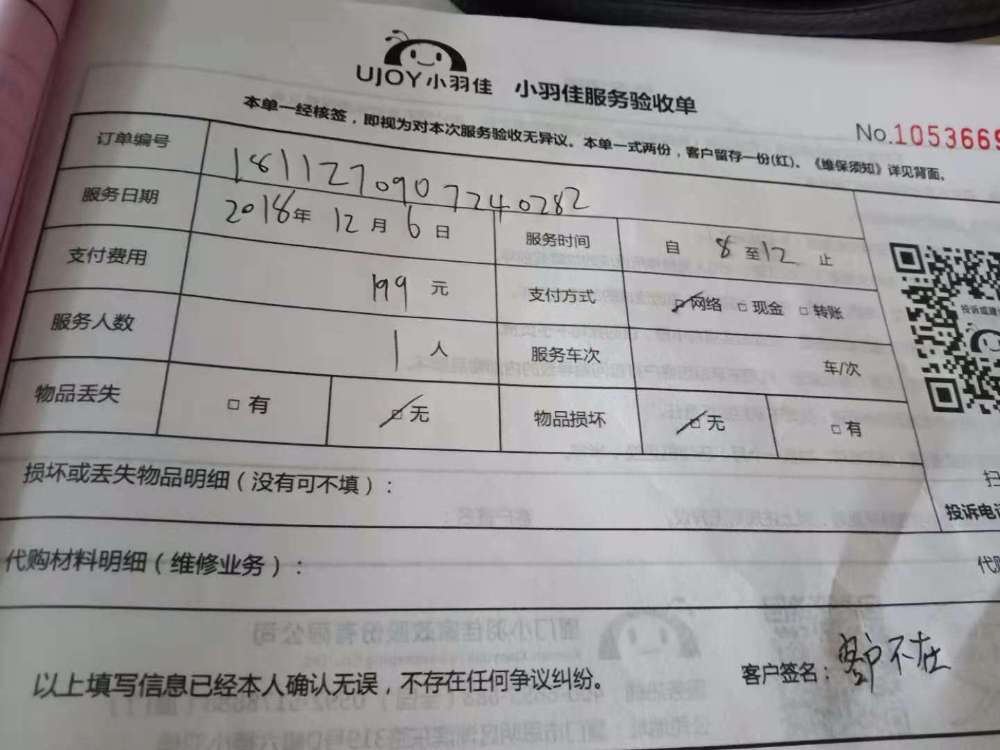 UJOY小羽佳 小羽佳服务验收单
No.1053669
本单一经核签，即视为对本次服务验收无异议。本单一式两份，客户留存一份(红)。《维保须知》详见背面。
订单编号 1811270907240282
服务日期 2018年 12月 6日 服务时间 自 8 至12 止
支付费用 199 元 支付方式 □网络 □现金 □转账
服务人数 1 人 服务车次 车/次
物品丢失 □有 □无 物品损坏 □无 □有
损坏或丢失物品明细（没有可不填）：
投诉电
代购材料明细（维修业务）：
以上填写信息已经本人确认无误，不存在任何争议纠纷。
客户签名：客户不在